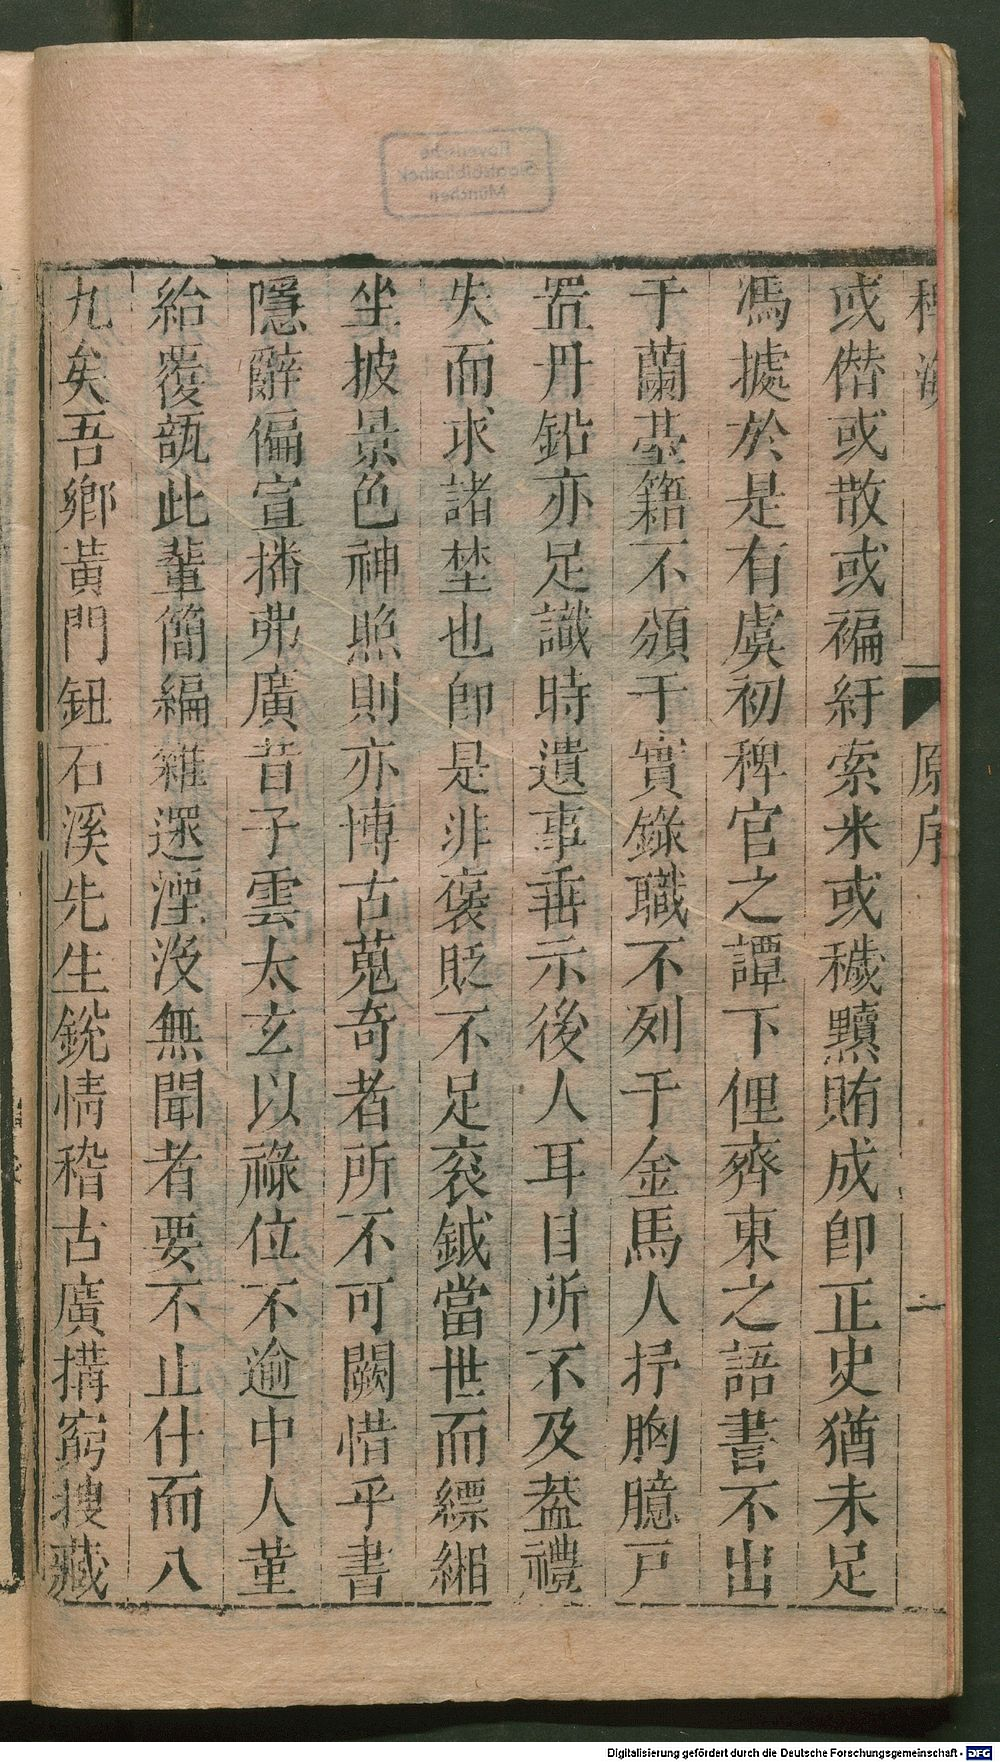 稗海
原序
一
或僣或散或褊紆索米或穢黷賄成卽正史猶未足
馮據於是有虞初稗官之譚下俚齊東之語書不出
于蘭臺籍不頒于實錄職不列于金馬人抒胸臆戸
置丹鉛亦足識時遺事垂示後人耳目所不及葢禮
失而求諸埜也卽是非褒貶不足袞鉞當世而縹緗
坐披景色神照則亦博古蒐奇者所不可闕惜乎書
隱辭偏宣播弗廣昔子雲太玄以祿位不逾中人菫
紿覆瓿此輩簡編雜遝湮沒無聞者要不止什而八
九矣吾鄉黃門鈕石溪先生銳情稽古廣搆窮搜藏
Bayerische
Staatsbibliothek
München
Digitalisierung gefördert durch die Deutsche Forschungsgemeinschaft - DFG